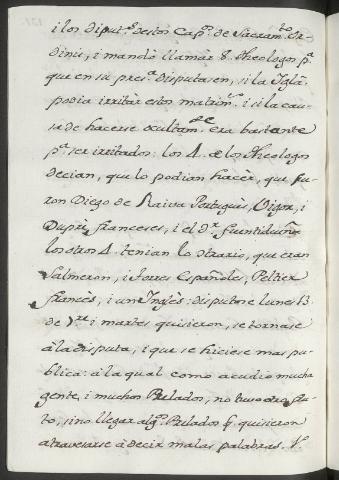 i los diput.ᵒˢ destos Cap.ᵒˢ de Sacram.ᵗᵒ Or-
dinis, i mandò llamar 8. theologos p.ᵃ
que en su pres.ᵃ disputasen, si la Igl.ᵃ
podia irritàr estos matrim.ᵒˢ i si la cau-
sa de hacerse ocultam.ᵗᵉ era bastante
p.ᵃ ser irritados: los 4. de los theologos
decian, que lo podian hacèr, que fue-
ron Diego de Paiva Portuguès, Vigor, i
Duprè franceses, i el d.ʳ fuentidueña
los otros 4. tenian lo contrario, que eran
Salmeron, i torres Españoles, Peltier
francès, i un Inglès: disputose lunes 13.
de i martes quisieron, se tornase
à la disputa, i que se hiciese mas pu-
blica: à la qual como acudio mucha
gente, i muchos Prelados, no tuvo otro fru-
to, sino llegar alg.ˢ Prelados q. quisieron
atravesarse à decir malas palabras.